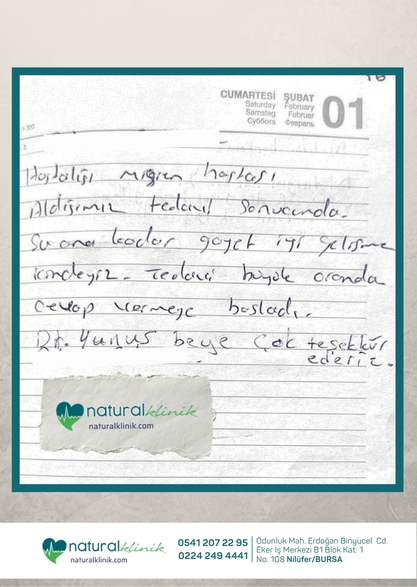 CUMARTESİ ŞUBAT 01
Saturday February
Samstag Februar
Суббота Февраль
Hastalığı migren hastası
Aldığımız tedavi sonucunda.
Şu ana kadar gayet iyi gelişme
içindeyiz. Tedavi büyük oranda
cevap vermeye başladı.
Dr. Yunus beye çok teşekkür
ederiz.
naturalklinik
naturalklinik.com
naturalklinik
naturalklinik.com
0541 207 22 95
0224 249 4441
Odunluk Mah. Erdoğan Binyücel Cd.
Eker İş Merkezi B1 Blok Kat: 1
No: 108 Nilüfer/BURSA